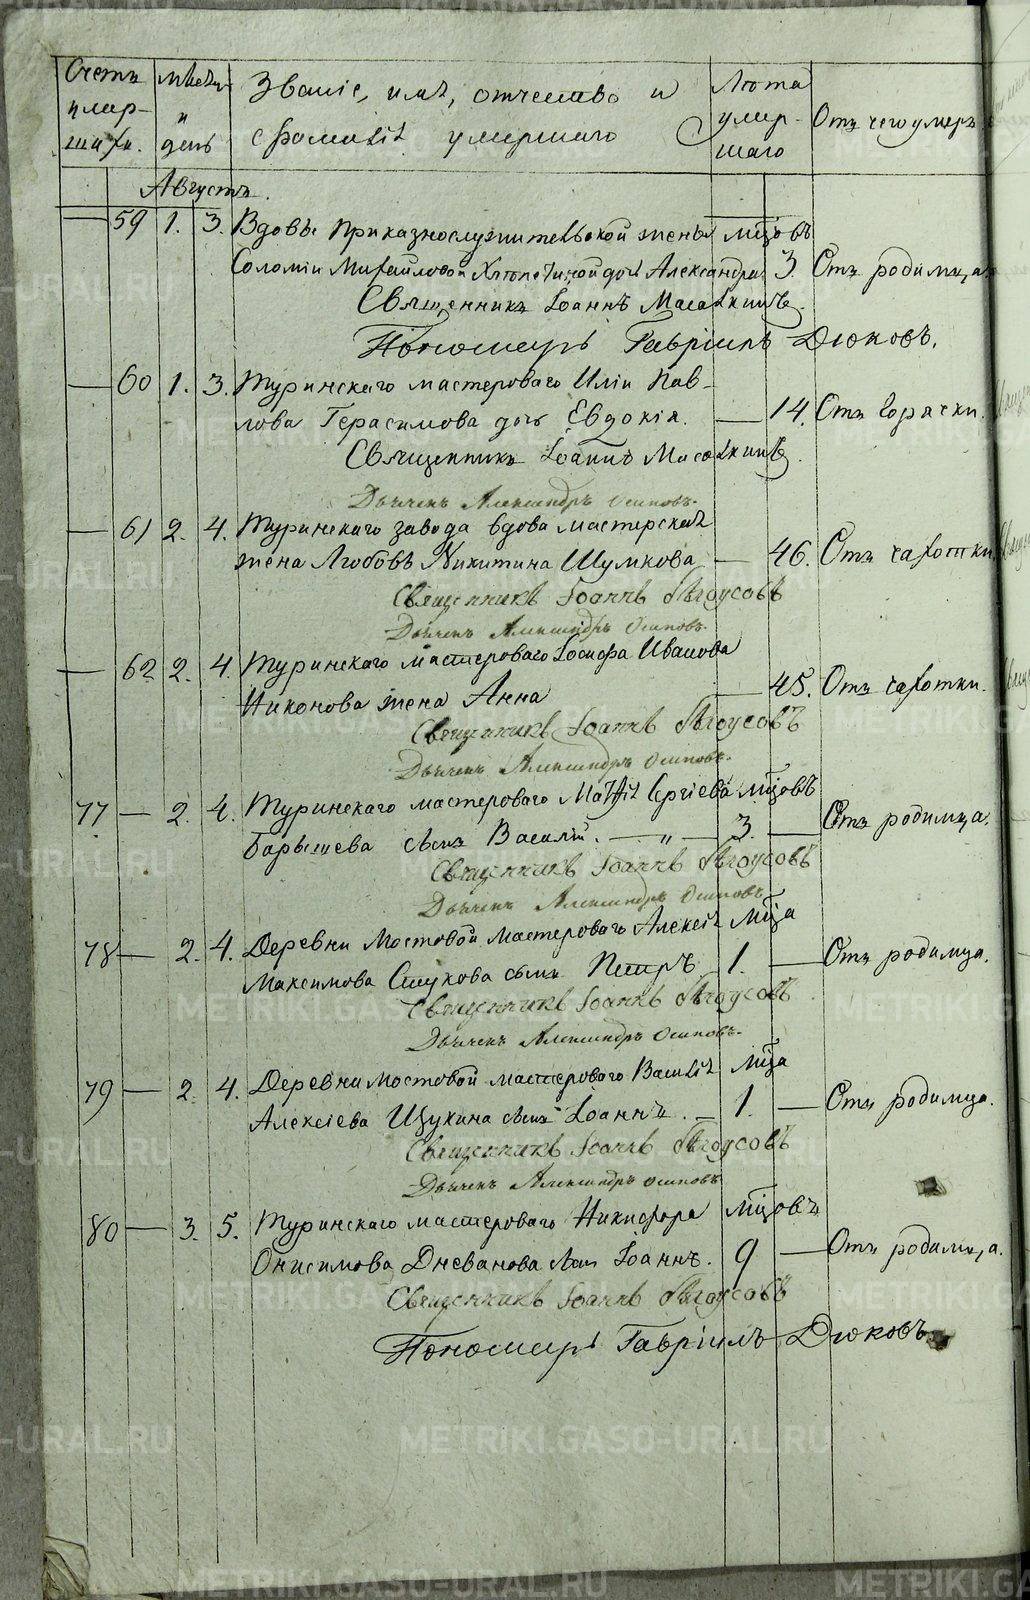 Счетъ умер- шихъ.
мѣсяцъ и день
Званіе, имя, отчество и фамилія умершаго
Лѣта умер- шаго
Отъ чего умеръ
Августъ.
— 59 1. 3. Вдовы приказнослужительской жены мцовъ
Соломіи Михайловой дочь Александра 3. Отъ родимца.
Священникъ Іоаннъ
Пономарь Гавріилъ Дюковъ.
— 60 1. 3. Туринскаго мастероваго Иліи Пав-
лова Герасимова дочь Евдокія. — 14. Отъ горячки.
Священникъ Іоаннъ
Дьячекъ Александръ Осиповъ.
— 61 2. 4. Туринскаго завода вдова мастерская
жена Любовь Никитина Шумкова — 46. Отъ чахотки
Священникъ Іоаннъ Бѣлоусовъ
Дьячекъ Александръ Осиповъ.
— 62 2. 4. Туринскаго мастероваго Іосифа Иванова
Никонова жена Анна — 45. Отъ чахотки.
Священникъ Іоаннъ Бѣлоусовъ
Дьячекъ Александръ Осиповъ.
77 — 2. 4. Туринскаго мастероваго Матѳія Сергіева мцовъ
Барышева сынъ Василій. — „ — 3. — Отъ родимца.
Священникъ Іоаннъ Бѣлоусовъ
Дьячекъ Александръ Осиповъ
78 — 2. 4. Деревни Мостовой мастероваго Алексія мца
Максимова сынъ Петръ. 1. — Отъ родимца.
Священникъ Іоаннъ Бѣлоусовъ
Дьячекъ Александръ Осиповъ.
79 — 2. 4. Деревни Мостовой мастероваго Василія мца
Алексіева Щукина сынъ Іоаннъ. — 1. — Отъ родимца.
Священникъ Іоаннъ Бѣлоусовъ
Дьячекъ Александръ Осиповъ
80 — 3. 5. Туринскаго мастероваго Никифора мцовъ
Онисимова сынъ Іоаннъ. 9 — Отъ родимца.
Священникъ Іоаннъ Бѣлоусовъ
Пономарь Гавріилъ Дюковъ
METRIKI.GASO-URAL.RU